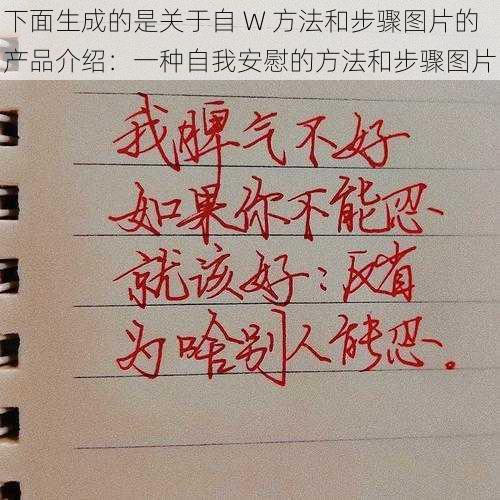 下面生成的是关于自 W 方法和步骤图片的
产品介绍：一种自我安慰的方法和步骤图片
我脾气不好
如果你不能忍
就该好：反省
为啥别人能忍。